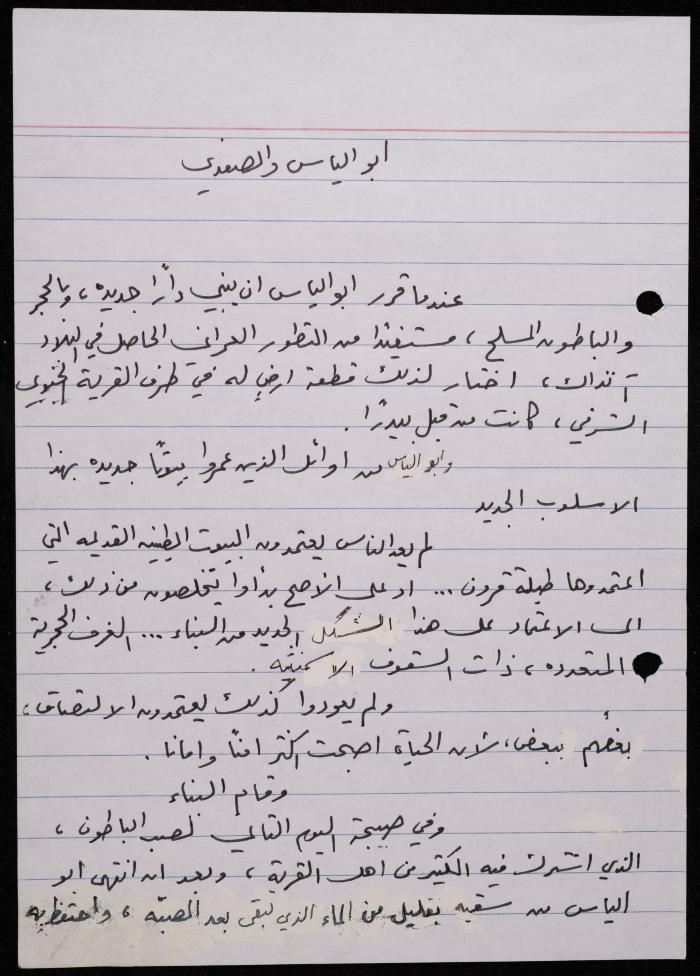 ابو الياس والصفدي
عندما قرر ابو الياس ان يبني دارًا جديده، وبالحجر
والباطون المسلح، مستفيدًا من التطور العمراني الحاصل في البلاد
آنذاك، اختار لذلك قطعة ارضٍ له في طرف القرية الجنوبي
الشرقي، كانت من قبل بيدرًا.
وابو الياس من اوائل الذين عمروا بيوتًا جديده بهذا
الاسلوب الجديد
لم يعد الناس يعتمدون البيوت الطينيه القديمه التي
اعتمدوها طيلة قرون... او على الاصح بدأوا يتخلصون من ذلك،
الى الاعتماد على هذا الشكل الجديد من البناء... الغرف الحجرية
المتعدده، ذات السقوف الاسمنتيه.
ولم يعودوا كذلك يعتمدون الالتصاق،
بعضُهم ببعض، لأن الحياة اصبحت اكثر امنًا وامانا.
وقام البناء
وفي صبيحة اليوم التالي لصب الباطون،
الذي اشترك فيه الكثير من اهل القرية، وبعد ان انتهى ابو
الياس من سقيه بقليل من الماء الذي تبقى بعد الصبّه، واحتفظ به